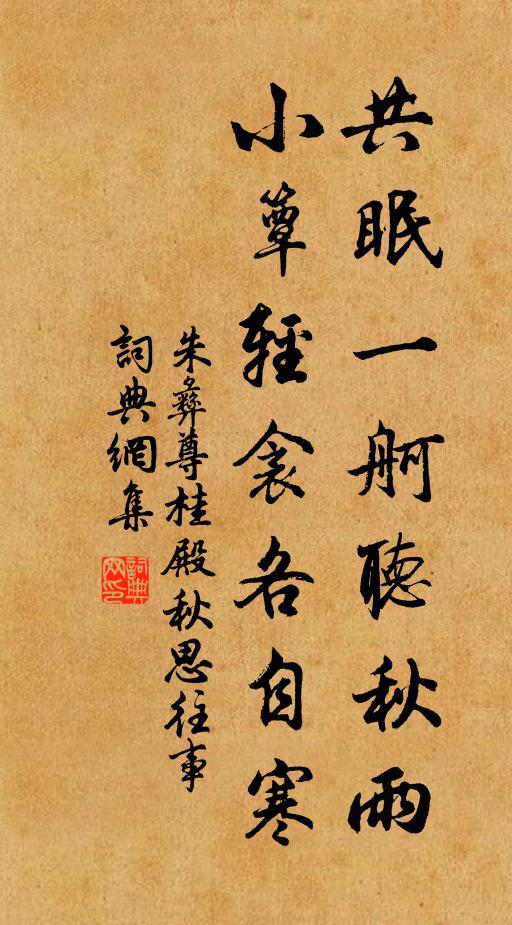 共眠一舸聽秋雨
小簟輕衾各自寒
朱彝尊桂殿秋思往事
詞典網集
詞典網印